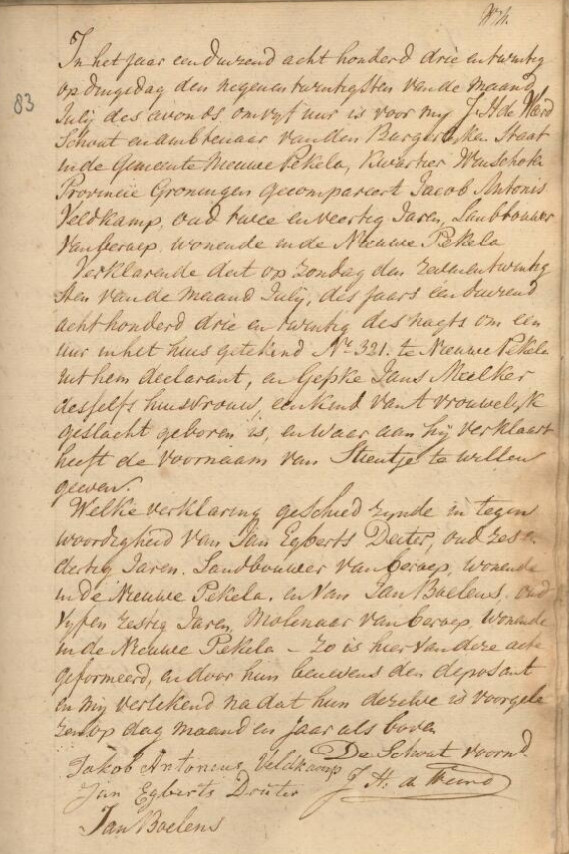 83
In het jaar eenduizend acht honderd drie en twintig
op dingsdag den negenentwintigsten van de maand
Julij des avonds om vyf uur is voor my J. H. de Weerd
Schout en ambtenaar van den Burgerlyken Staat
in de Gemeente Nieuwe Pekela, Kwartier Winschoten
Provincie Groningen gecompareert Jacob Antonis
Veldkamp, oud twee en veertig Jaren, Landbouwer
van beroep, wonende in de Nieuwe Pekela
Verklarende dat op zondag den zevenentwintig
sten van de maand July, des jaars een duizend
acht honderd drie en twintig des nagts om een
uur in het huis getekend No. 321. te Nieuwe Pekela
uit hem declarant, en Gepke Jans Meelker
desselfs huisvrouw, een kind van t vrouwelyk
geslacht geboren is, en waar aan hij verklaart
heeft de voornaam van Steentje te willen
geven.
Welke verklaring geschied zynde in tegen
woordigheid van Jan Egberts Deuter, oud zes en
dertig Jaren, Landbouwer van beroep, wonende
in de Nieuwe Pekela, en van Jan Boelens, oud
vyf en zestig Jaren, Molenaar van beroep, wonende
in de Nieuwe Pekela – zo is hier van deze acte
geformeerd, en door hun benevens den deposant
en my getekend na dat hun dezelve is voorgele
zen op dag maand en Jaar als boven
De Schout voornd.
Jakob Antonius Veldkamp
J. H. de Weerd
Jan Egberts Druter
Jan Boelens